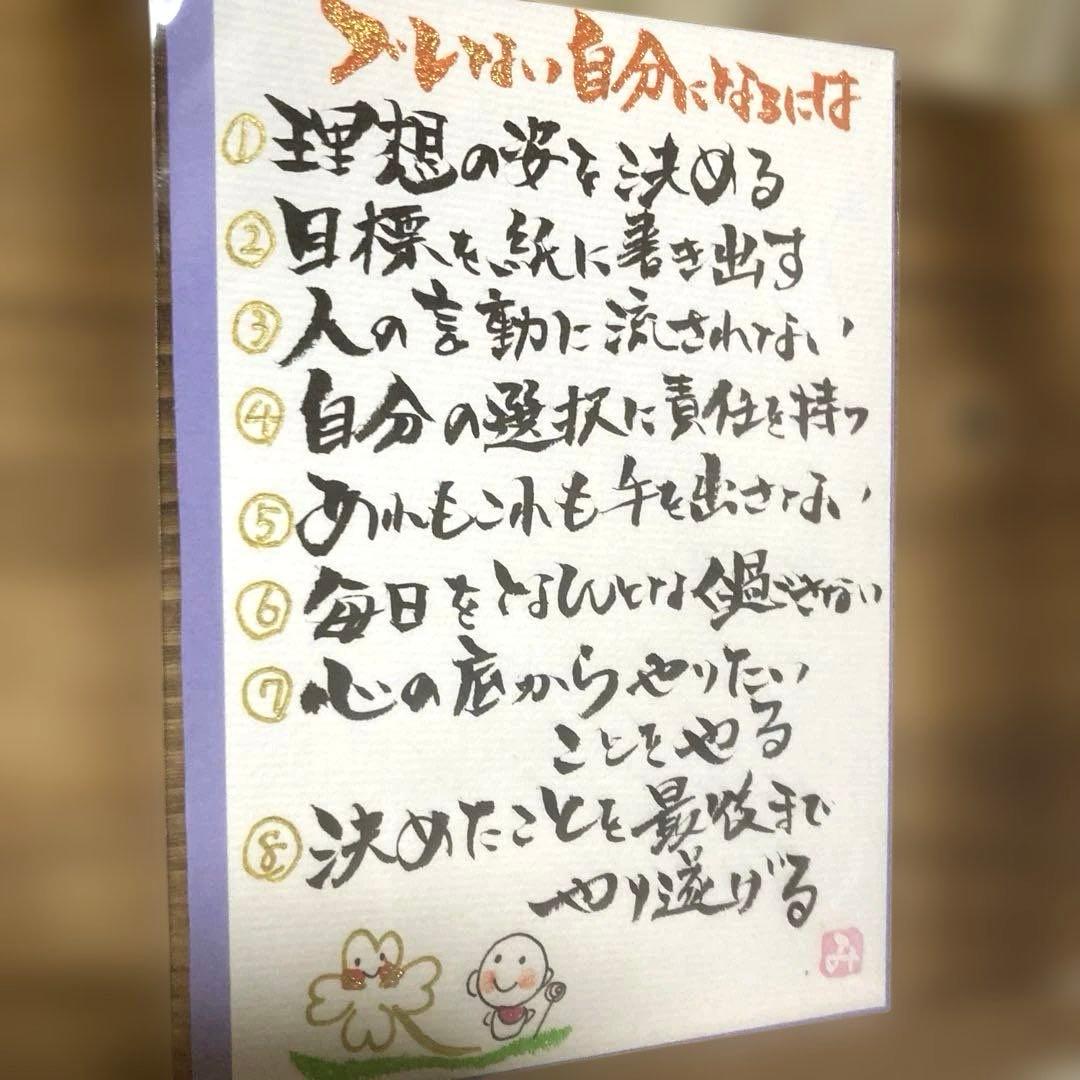 ブレない自分になるには
①理想の姿を決める
②目標を紙に書き出す
③人の言動に流されない
④自分の選択に責任を持つ
⑤あれもこれも手を出さない
⑥毎日をなんとなく過ごさない
⑦心の底からやりたい
ことをやる
⑧決めたことを最後まで
やり遂げる